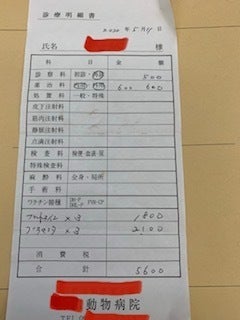 診療明細書
年 5月11日
氏名 様
科目 金額
診察料 初診・再診 500
薬治料 内用・外用 600 600
処置料 一般・特殊
皮下注射料
筋肉注射料
静脈注射料
点滴注射料
検査料 検便・血液・尿
特殊検査料
麻酔料 全身・局所
手術料
ワクチン接種
×3 1800
×3 2100
消費税
合計 5600
動物病院
TEL